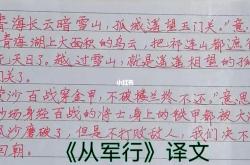 青海长云暗雪山，孤城遥望玉门关。"意
青海湖上大面积的乌云，把祁连山都遮
天日了。越过雪山，就是遥遥相望的孤
门关了。
沙百战穿金甲，不破楼兰终不还。"意思
沙场身经百战的将士，身上的铁甲都被大
沙磨破了，但是不打败敌人，我们决
回朝。
小红书
《从军行》译文